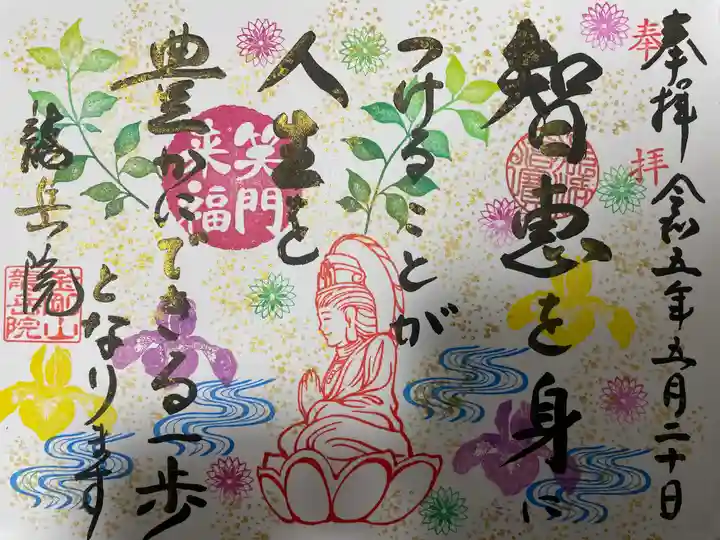 奉拝
奉拝 令和五年五月二十日
智恵を身に
つけることが
人生を
豊かにできる一歩
となります
笑門
来福
龍岳院
金剛山
龍岳院